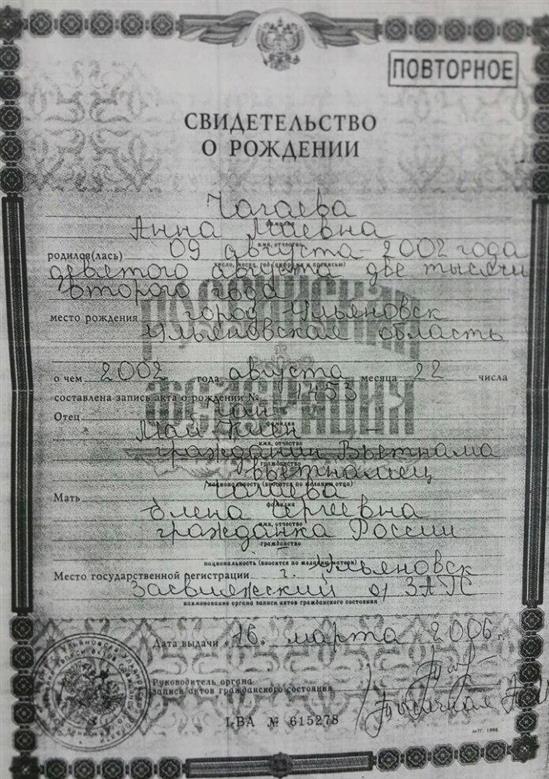 ПОВТОРНОЕ
СВИДЕТЕЛЬСТВО
О РОЖДЕНИИ
Чагаева
Анна Маевна
имя, отчество
родился(лась) 09 августа 2002 года
число, месяц, год (цифрами и прописью)
девятого августа две тысячи
второго года
РОССИЙСКАЯ
место рождения город Ульяновск
Ульяновская область
о чем 2002 года августа месяца 22 числа
ФЕДЕРАЦИЯ
составлена запись акта о рождении №
Отец
Май
имя, отчество
гражданин Вьетнама
гражданство
вьетнамец
национальность (вносится по желанию отца)
Чагаева
фамилия
Мать Елена Сергеевна
имя, отчество
гражданка России
гражданство
национальность (вносится по желанию матери)
Место государственной регистрации г. Ульяновск
Засвияжский о/ ЗАГС
наименование органа записи актов гражданского состояния
Дата выдачи 16 марта 2006 г.
Руководитель органа
записи актов гражданского состояния
I-ВА № 615278